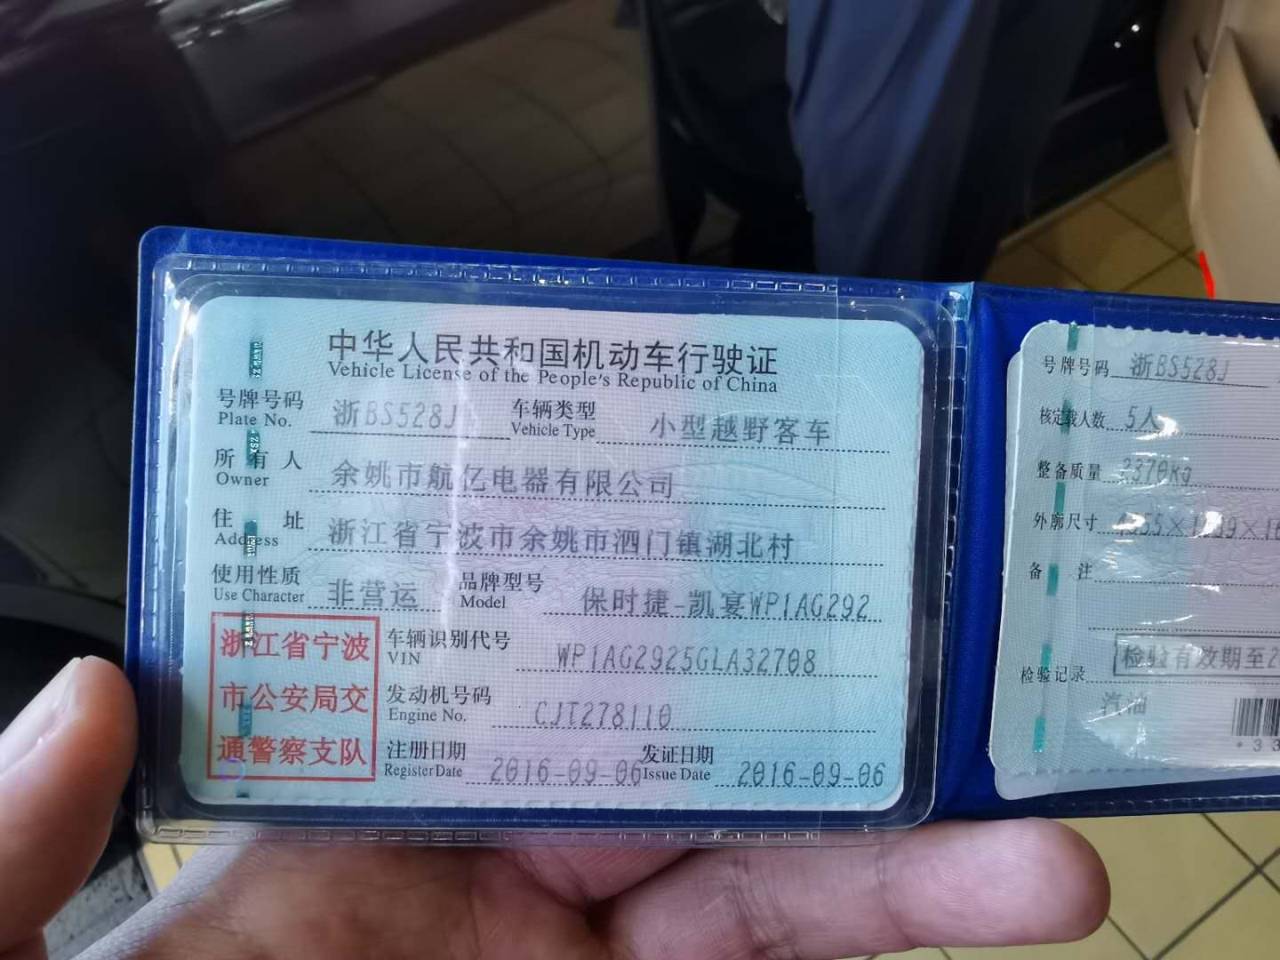 中华人民共和国机动车行驶证
Vehicle License of the People's Republic of China
号牌号码 浙BS528J 车辆类型 小型越野客车
Plate No. Vehicle Type
所有人 余姚市航亿电器有限公司
Owner
住址 浙江省宁波市余姚市泗门镇湖北村
Address
使用性质 非营运 品牌型号 保时捷-凯宴WP1AG292
Use Character Model
浙江省宁波
市公安局交
通警察支队
车辆识别代号 WP1AG2925GLA32708
VIN
发动机号码 CJT278110
Engine No.
注册日期 2016-09-06 发证日期 2016-09-06
Register Date Issue Date
号牌号码 浙BS528J
核定载人数 5人
整备质量 2370kg
外廓尺寸
备注
检验记录 检验有效期至2
汽油